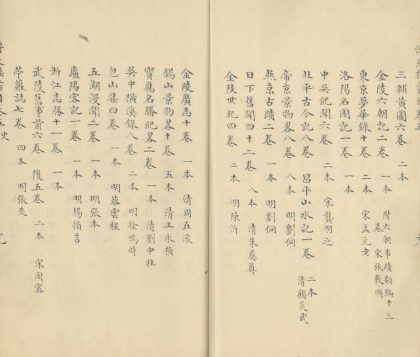 三輔黃圖六卷 二本
金陵六朝記二卷 一本 附六朝事蹟類編十三卷 宋張敦頤
東京夢華錄十卷 二本 宋孟元老
洛陽名園記一卷 一本
中吳紀聞六卷 二本 宋龔明之
北平古今記八卷 昌平山水記一卷 二本 清顧炎武
帝京景物畧八卷 八本 明劉侗
燕京古蹟二卷 一本 明劉侗
日下舊聞四十二卷 八本 清朱彝尊
金陵世紀四卷 二本 明陳沂
金陵廣志十卷 一本 清周在浚
錫山景物畧十卷 五本 清王永積
寶應名勝紀畧二卷 一本 清劉中柱
吳中橫溪錄八卷 二本 明徐鳴時
包山集四卷 一本 明蔡雲程
五朝漫聞二卷 一本 明張本
廬陽客記一卷 一本 明楊循吉
浙江志勝十一卷 一本
武陵舊事前六卷 後五卷 二本 宋周密
苧蘿誌七卷 四本 明張夬